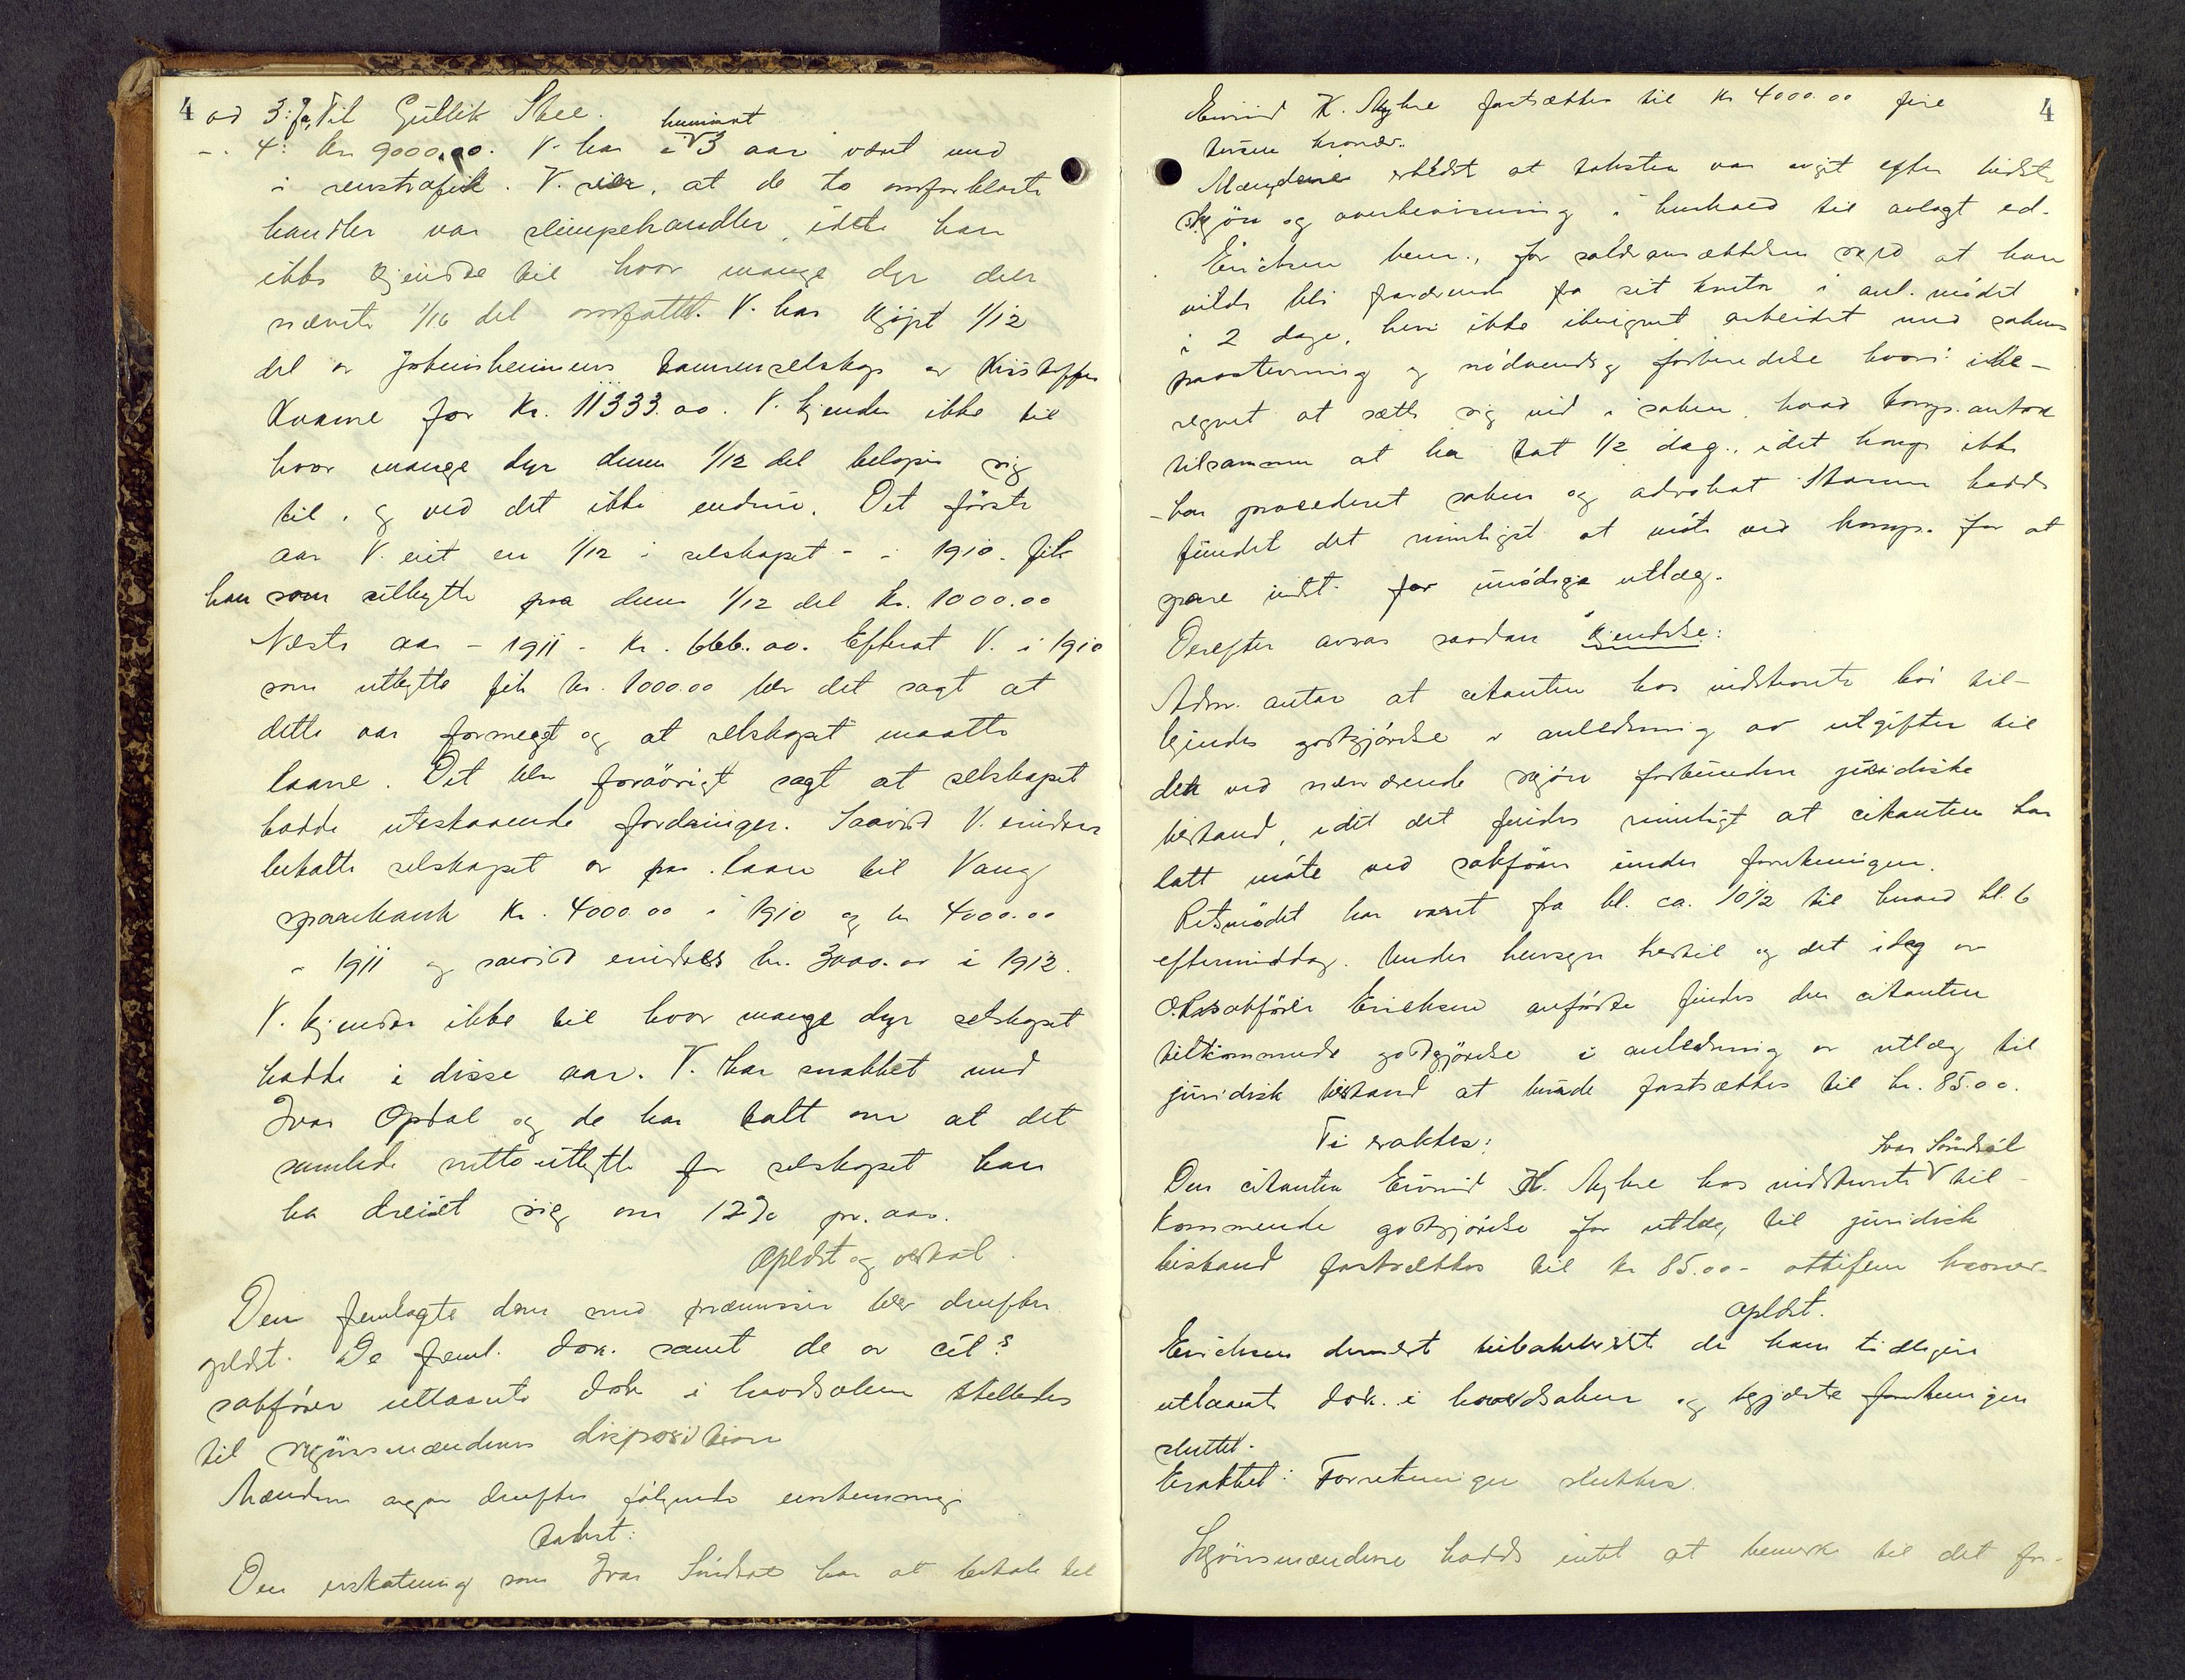 4 ad 3: Ja, Til Gullik Skee.
- . 4: kr 9000,00. V. har i hvminst 3 aar været med
i renstrafik. V. sier, at de to omforklarte
handler var slumpehandler, idet han
ikke kjendte til hvor mange dyr den
nævnte 1/16 del omfattet. V. har kjöpt 1/12
del av Jotunheimens tamrenselskap av Kristoffer
Kvame for Kr. 11333.00. V. kjender ikke til
hvor mange dyr denne 1/12 del belöper sig
til, og ved det ikke endnu. Det förste
aar V. eiet en 1/12 i selskapet - i 1910. fik
han som utbytte paa denne 1/12 del kr. 1000.00
Næste aar - 1911 - kr. 666.00. Efterat V. i 1910
som utbytte fik kr. 1000.00 blev det sagt at
dette var formeget og at selskapet maatte
laane. Det blev forövrigt sagt at selskapet
hadde utestaaende fordringer. Saavidt V. erindrer
betalte selskapet av paa laan til Vang
sparebank Kr. 4000.00 i 1910 og kr 4000.00
i 1911 og saavidt erindres kr. 3000.00 i 1912.
V. kjender ikke til hvor mange dyr selskapet
hadde i disse aar. V. har snakket med
Ivar Opdal og de har talt om at det
samlede nettoutbytte for selskapet kan
ha dreiet sig om 12% pr. aar.
Oplæst og vedtat.
Den fremlagte dom med præmisser blev derefter
oplæst. De freml. dok. samt de av cit.s
sakförer utlaante dok i hovedsaken stilledes
til skjönsmændenes disposition
Mændene avgav derefter fölgende enstemmig
takst:
Den erstatning som Ivar Sündröl har at betale til
4
Eivind K. Myhre fastsættes til kr 4000.00 fire
tusen kroner.
Mændene erklært at taksten var avgit efter bedste
skjön og overbevisning i henhold til avlagt ed.
Erichsen bem., for salæransættelsen ved at han
vilde bli fraværende fra sit kontor i anl. mödet
i 2 dage, heri ikke iberegnet arbeidet med sakens
paastevning og nödvendig forberedelse hvori ibe-
regnet at sætte sig ind i saken, hvad komp. antar
tilsammen at ha tat 1/2 dag., idet komp ikke
har procederet saken og advokat Stamm hadde
fundet det rimeligst at möte ved komp. for at
spare indst. for unödige utlæg.
Derefter avsas saadan kjendelse:
Adm. antar at citanten hos indstevnte bör til-
kjendes godtgjörelse i anledning av utgifter til
den ved nærværende skjön forbunden juridiske
bistand, idet det findes rimeligt at citanten har
latt möte ved sakförer under forretningen.
Retsmödet har varet fra kl. ca. 10 1/2 til henad kl. 6
eftermiddag. Under hensyn hertil og det idag av
O.Rsakförer Erichsen anförte findes den citanten
tilkommende godtgjörelse i anledning av utlæg til
juridisk bistand at burde fastsættes til kr. 85.00.
Ti eraktes:
Den citanten Eivind K. Myhre hos indstevnte Ivar Sündröl til-
kommende godtgjörelse for utlæg til juridisk
bistand fastsættes til kr 85.00 - ottifem kroner -
oplæst.
Erichsen dernæst tilbakeleverett de ham tidligere
utlaante dok. i hovedsaken og begjærte forretningen
sluttet.
Eraktet: Forretningen sluttes.
Skjönsmændene hadde intet at bemerke til det for-